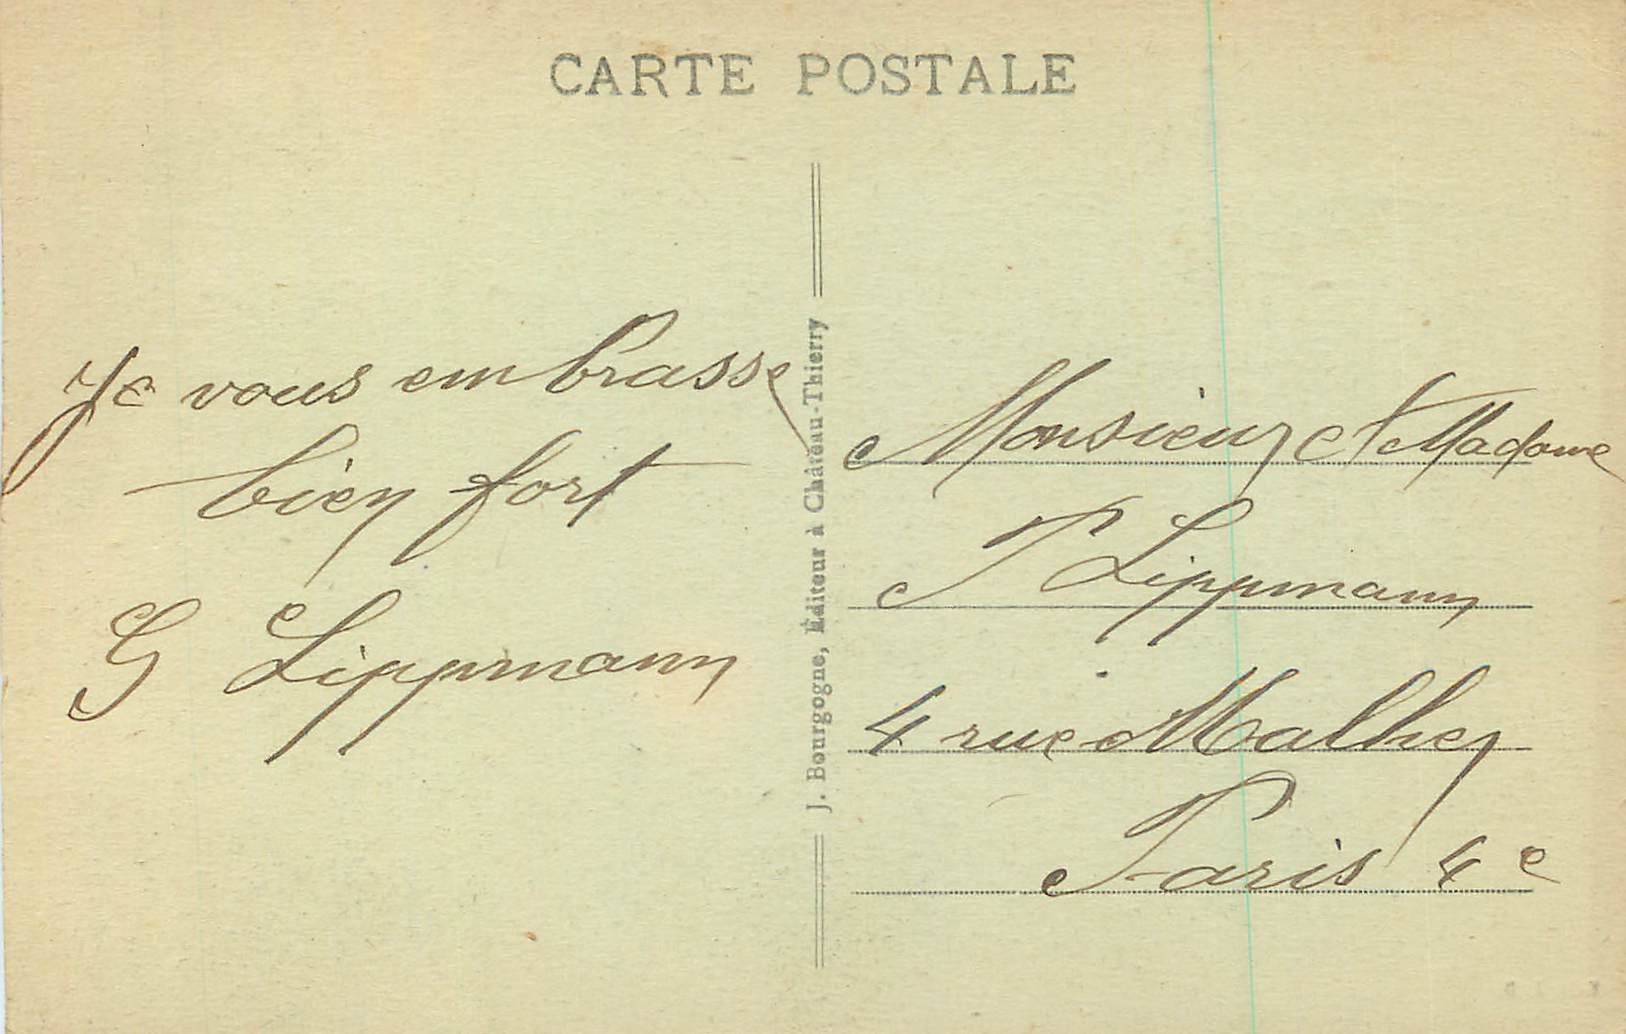 CARTE POSTALE
Je vous embrasse
bien fort
G Lippmann
J. Bourgogne, Éditeur à Château-Thierry
Monsieur et Madame
P Lippmann
4 rue Malher
Paris 4e